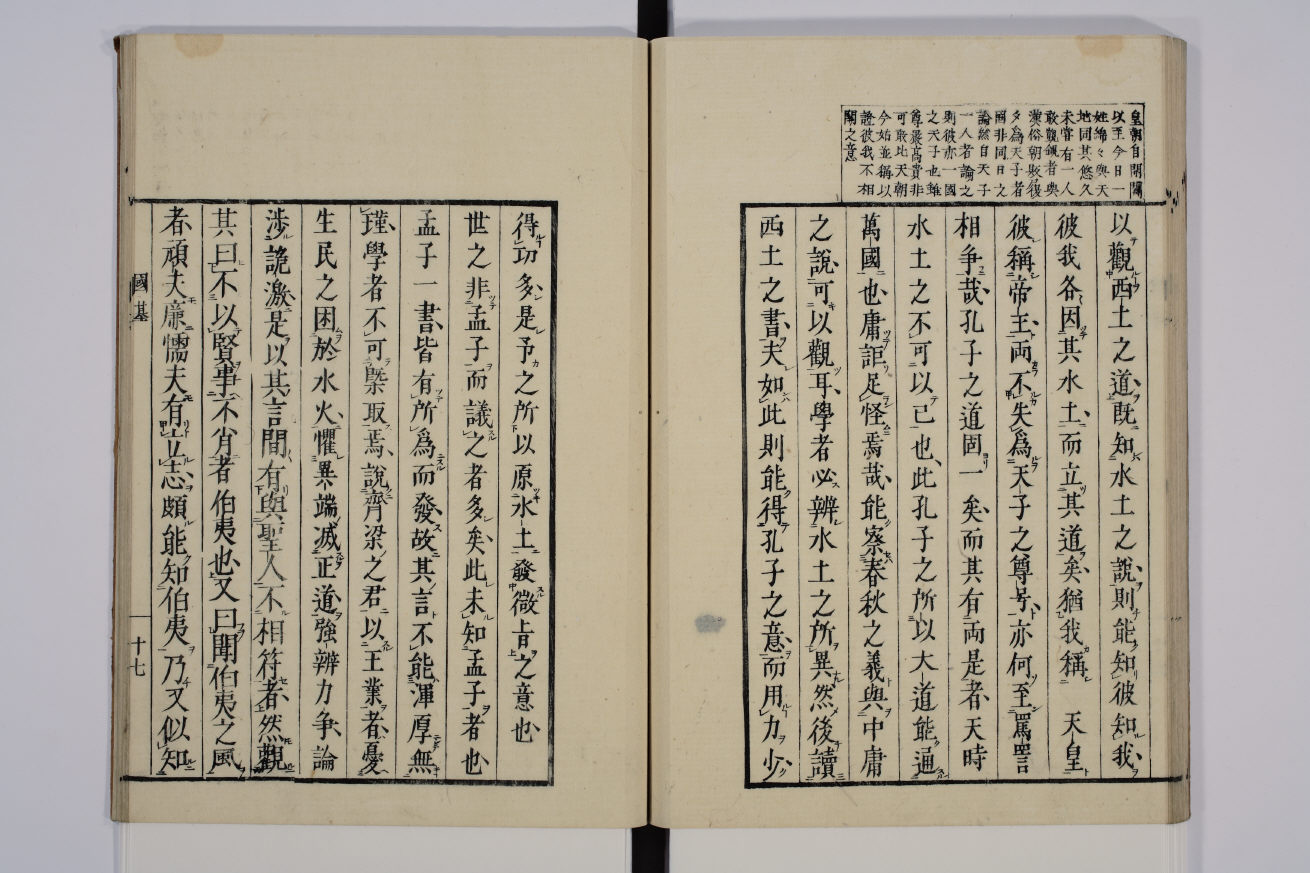 皇朝自開闢
以至今日一
姓綿々與天
地同其悠久
未嘗有一人
敢覬覦者與
漢俗朝敗後
夕爲天子者
國非同日之
論然自天子
一人者論之
則彼亦一國
之天子也雖
尊嚴高貴非
可敢比天朝
今始並稱以
證彼我不相
關之意
以觀西土之道既知水土之説則能知彼知我
彼我各因其水土而立其道矣猶我稱 天皇
彼稱帝王両不失爲天子之尊号亦何至罵詈
相争哉孔子之道固一矣而其有両是者天時
水土之不可以已也此孔子之所以大道能通
萬國也庸詎足怪焉哉能察春秋之義與中庸
之説可以觀耳學者必辨水土之所異然後讀
西土之書夫如此則能得孔子之意而用力少
得功多是予之所以原水土發微旨之意也
世之非孟子而議之者多矣此未知孟子者也
孟子一書皆有所爲而發故其言不能渾厚無
瑾學者不可槩取焉説齊梁之君以王業者憂
生民之困於水火懼異端滅正道強辨力争論
渉詭激是以其言間有與聖人不相符者然觀
其曰不以賢事不肖者伯夷也又曰聞伯夷之風
者頑夫廉懦夫有立志頗能知伯夷乃又似知
國基
十七